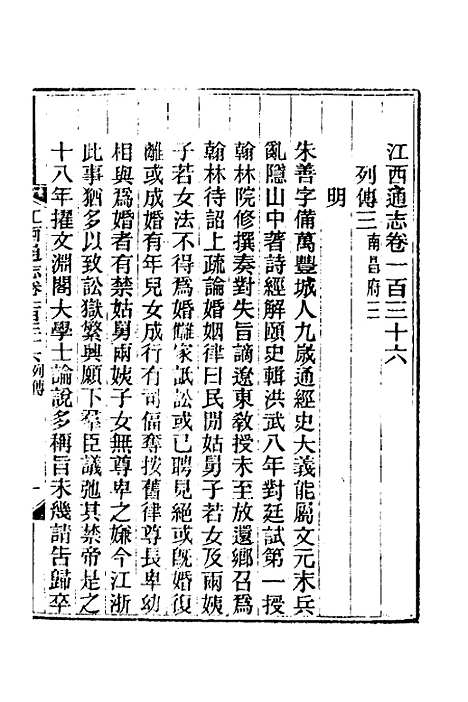 江西通志卷一百三十六
列傳三南昌府三
明
朱善字備萬豐城人九歲通經史大義能屬文元末兵
亂隱山中著詩經解頤史輯洪武八年對廷試第一授
翰林院修撰奏對失旨謫遼東教授未至放還鄉召爲
翰林待詔上疏論婚姻律曰民間姑舅子若女及兩姨
子若女法不得爲婚讎家詆訟或已聘見絕或旣婚復
離或成婚有年兒女成行有司偪奪按舊律尊長卑幼
相與爲婚者有禁姑舅兩姨子女無尊卑之嫌今江浙
此事猶多以致訟獄繁興願下羣臣議弛其禁帝是之
十八年擢文淵閣大學士論說多稱旨未幾請告歸卒
江西通志卷一百三十六列傳 一